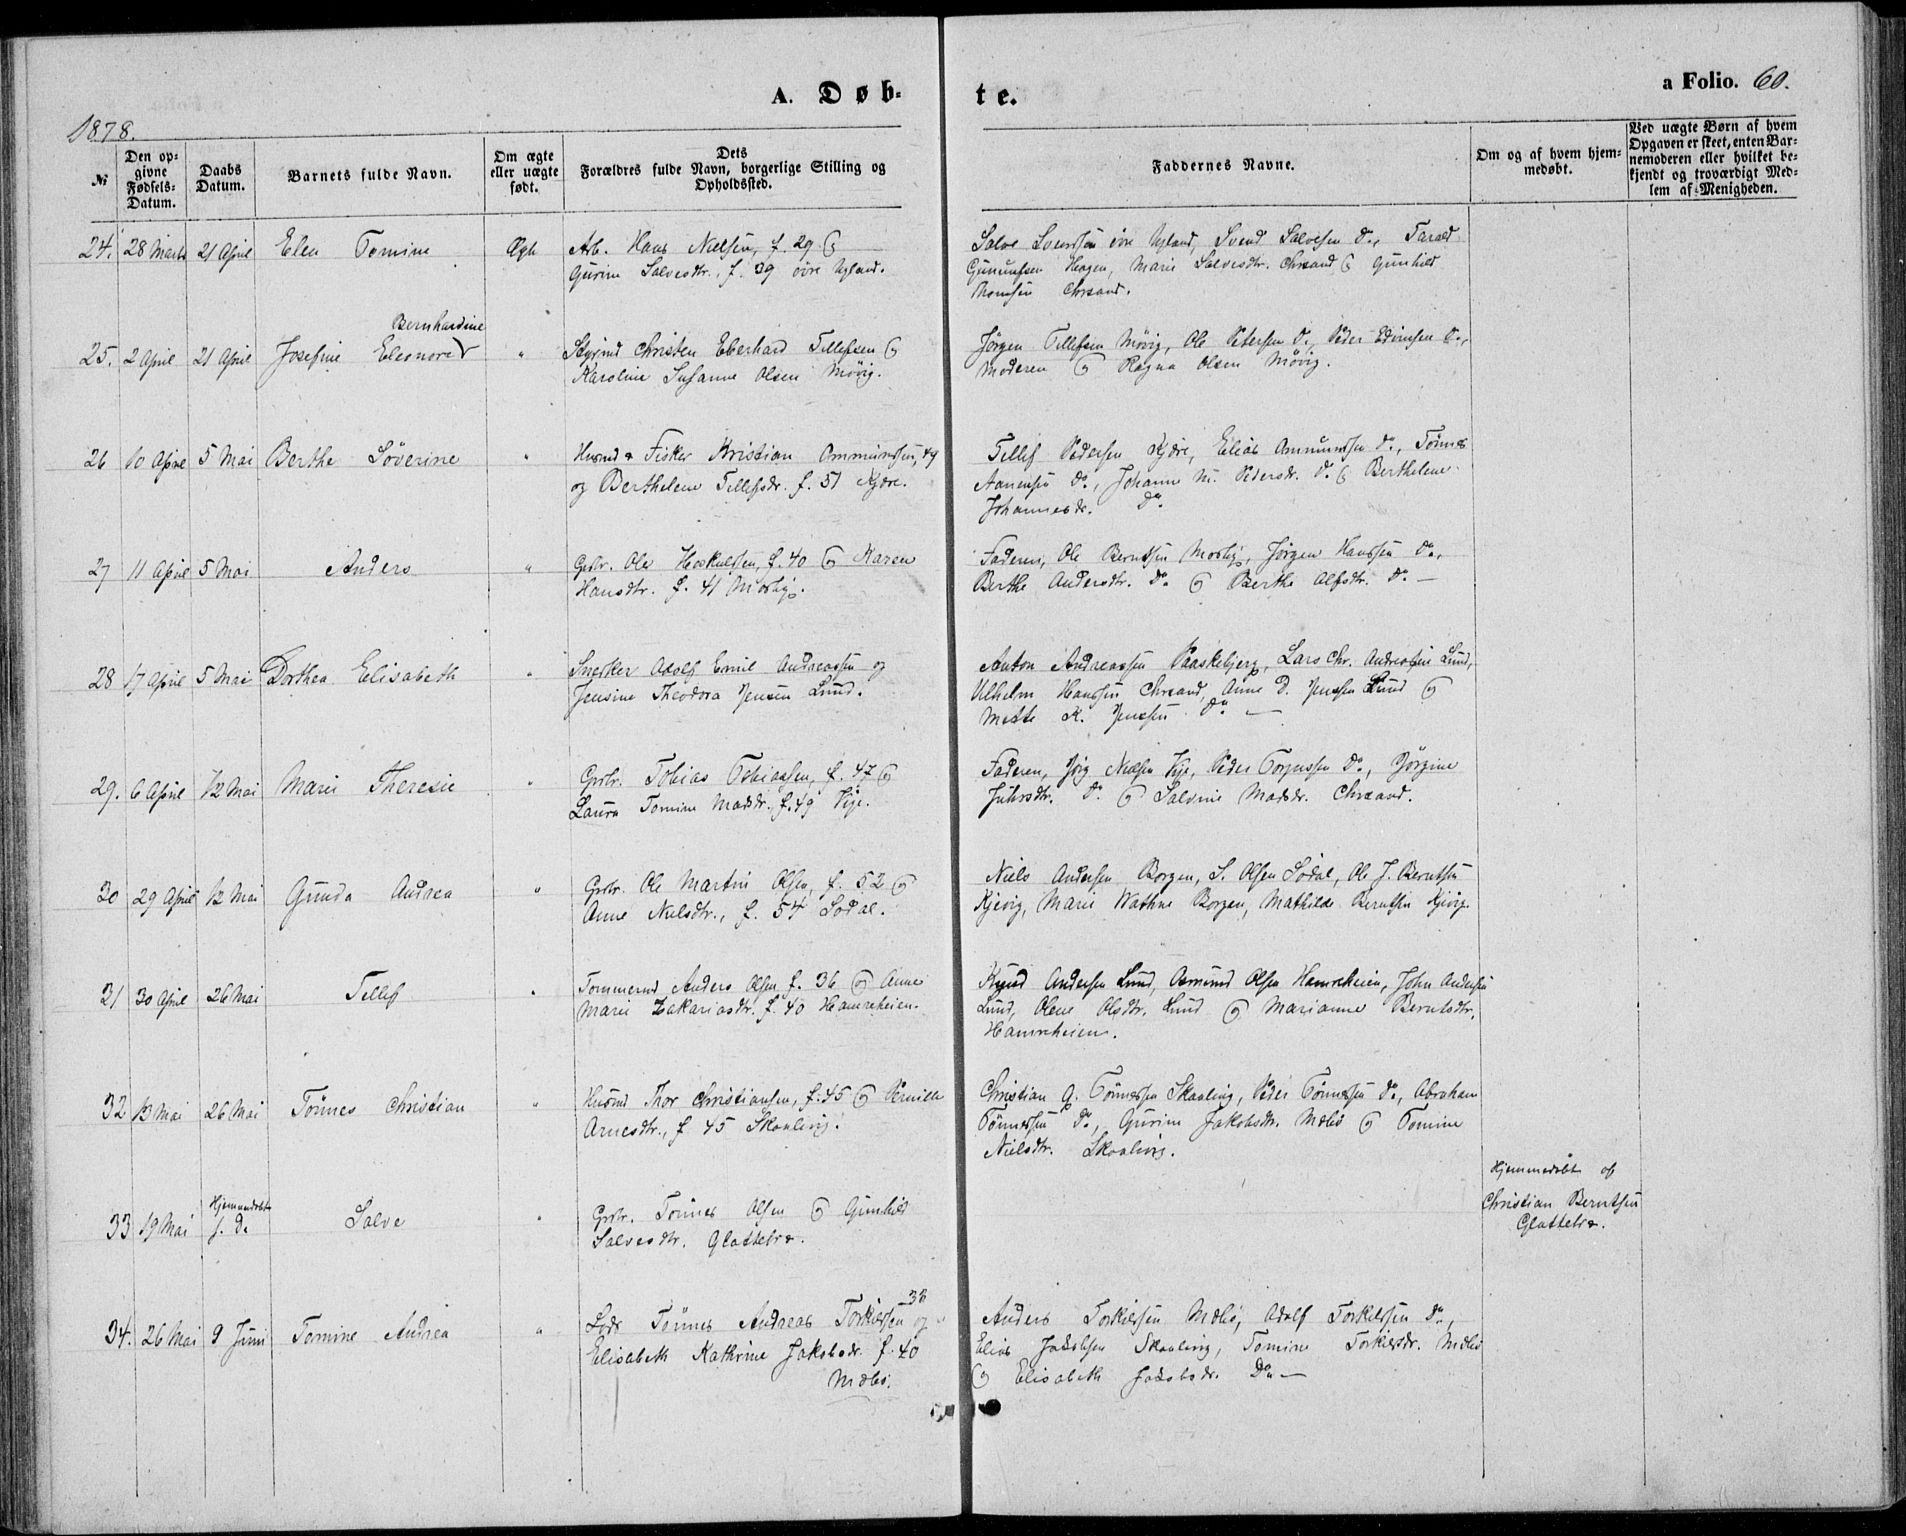 A. Døb-
te.
a Folio. 60.
1878.
№
Den op-
givne
Fødsels-
Datum.
Daabs
Datum.
Barnets fulde Navn.
Om ægte
eller uægte
født.
Dets
Forældres fulde Navn, borgerlige Stilling og
Opholdssted.
Faddernes Navne.
Om og af hvem hjem-
medøbt.
Ved uægte Børn af hvem
Opgaven er skeet, enten Bar-
nemoderen eller hvilket be-
kjendt og troværdigt Med-
lem af Menigheden.
24. 28 Marts 21 April Elen Tomine Ægte Arb. Hans Nielsen, f. 29 &
Gurine Salvesdtr. f. 39 övre Ugland.
Salve Svendsen övre Ugland, Svend Salvesen do, Tarald
Gunuufsen Hagen, Marie Salvesdtr. Chrsand & Gunhild
Thomsen Chrsand.
Bernhardine
25. 2 April 21 April Josefine Eleonore " Styrmd Christen Eberhard Tellefsen &
Karoline Susanne Olsen Mövig.
Jörgen Tellefsen Mövig, Ole Petersen do, Peder Edvinsen do,
Moderen & Ragna Olsen Mövig.
26 10 April 5 Mai Berthe Söverine " Husmd & Fisker Kristian Ommundsen, 49
og Berthelene Tellefsdr. f. 51 Kjdre.
Tellef Pedersen Kjdre, Elias Ommundsen do, Tönnes
Aanensen do, Johanne M. Pedersdr. do & Berthelene
Johannesdr. do
27 11 April 5 Mai Anders " Grbr. Ole Hoskulsen, f. 40 & Karen
Hansdtr. f. 41 Mosby.
Faderen, Ole Berntsen Mosby, Jörgen Hanssen do,
Berthe Andersdtr. do & Berthe Alfsdtr. do —
28 17 April 5 Mai Dorthea Elisabeth " Snedker Adolf Emil Andreassen og
Jensine Theodora Jensen Lund.
Anton Andreassen Paaskebjerg, Lars Chr. Andreassen Lund,
Vilhelm Hanssen Chrsand, Anne D. Jenssen Lund &
Mette K. Jenssen do —
29. 6 April 12 Mai Marie Theresie " Grbr. Tobias Tobiassen, f. 47 &
Laura Tomine Madsdr. f. 49 Vije.
Faderen, Jörg Nielsen Vije, Peder Torjussen do, Jörgine
do & Salvine Madsdr. Chrsand.
30 29 April 12 Mai Gunda Andrea " Grbr. Ole Martin Olsen, f. 52 &
Anne Nielsdtr., f. 54 Sodal.
Niels Andersen Borgen, S. Olsen Södal, Ole J. Berntsen
Kjevig, Marie Wathne Borgen, Mathilde Berntsen Kjevig.
31 30 April 26 Mai Tellef " Tömmermd Anders Olsen f. 36 & Anne
Marie Zakariasdtr. f. 40 Hamreheien.
Knud Andersen Lund, Osmund Olsen Hamreheien, John Andersen
Lund, Olene Olsdtr. Lund & Marianne Berntsdtr.
Hamreheien.
32 13 Mai 26 Mai Tönnes Christian " Husmd Thor Christiansen, f. 45 & Pernille
Arnesdtr., f 45 Skaalevig.
Christian G. Tönnessen Skaalevig, Peder Tönnessen do, Abraham
Tönnessen do, Gurine Jakobsdtr. Mdbö & Tomine
Nielsdtr. Skaalevig.
33 19 Mai Hjemmedöbt
s. D. Salve " Grbr. Tönnes Olsen & Gunhild
Salvesdtr. Glattetre.
Hjemmedöbt af
Christian Berntsen
Glattetre.
34. 26 Mai 9 Juni Tomine Andrea " Lods Tönnes Andreas Torkelsen 38 og
Elisabeth Kathrine Jakobsdr. f. 40
Mdbö.
Anders Torkelsen Mdbö, Adolf Torkelsen do,
Elias Jakobsen Skaalevig, Tomine Torkelsdr. Mdbö
& Elisabeth Jakobsdr. do —